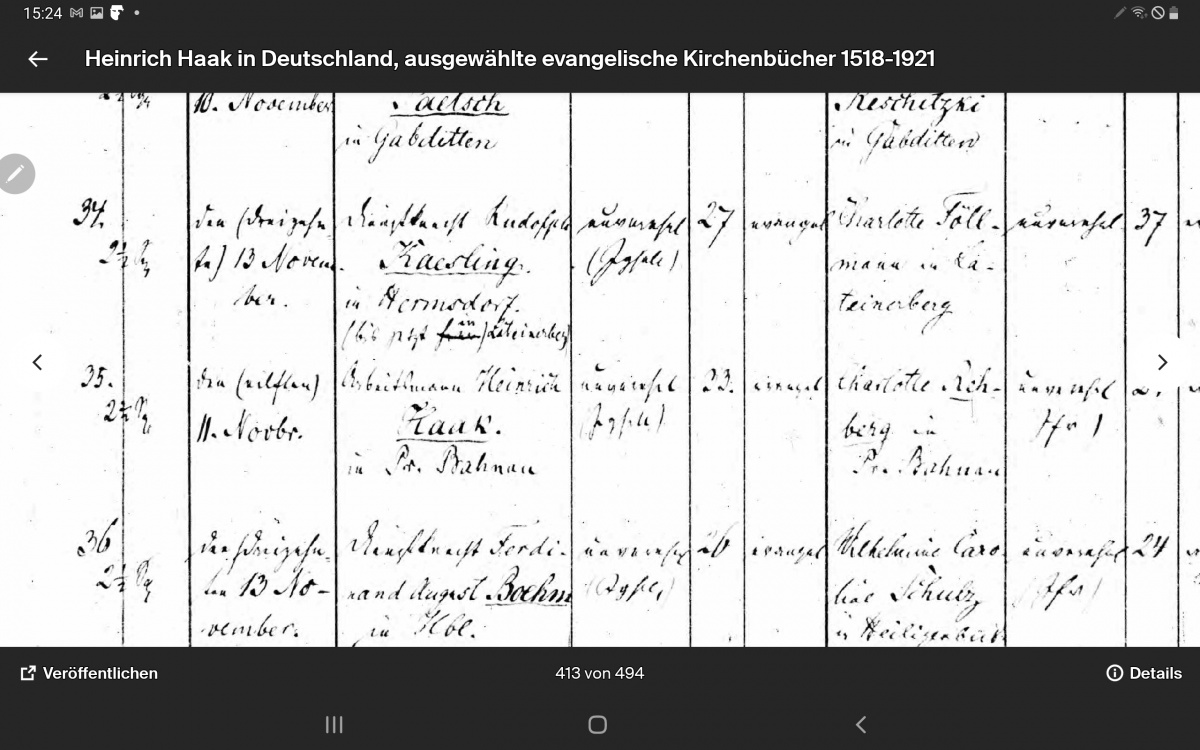 15:24
Heinrich Haak in Deutschland, ausgewählte evangelische Kirchenbücher 1518-1921
10. November
Paetsch
in Gabditten
Reschitzki
in Gabditten
34.
den (dreizehn-
ten) 13 Novem-
ber.
Dienstknecht Rudolph
Kaesling.
in Hermsdorf.
(bis jetzt in Lateinerberg)
unverehel
(Jgsell)
27
evangel
Charlotte Föll-
mann in La-
teinerberg
unverehel.
37
35.
den (eilften)
11. Novbr.
Arbeitsmann Heinrich
Haak.
in Pr. Bahnau
unverehel
(Jgsell)
23.
evangel
Charlotte Reh-
berg in
Pr. Bahnau
unverehel
Jfr)
36
den (dreizehn-
ten 13 No-
vember.
Dienstknecht Ferdi-
nand August Boehm
in Hbl.
unverehel
(Jgsell)
26
evangel
Wilhelmine Caro-
line Schulz
in Heiligenbeil
unverehel
(Jfr)
24
Veröffentlichen
413 von 494
Details